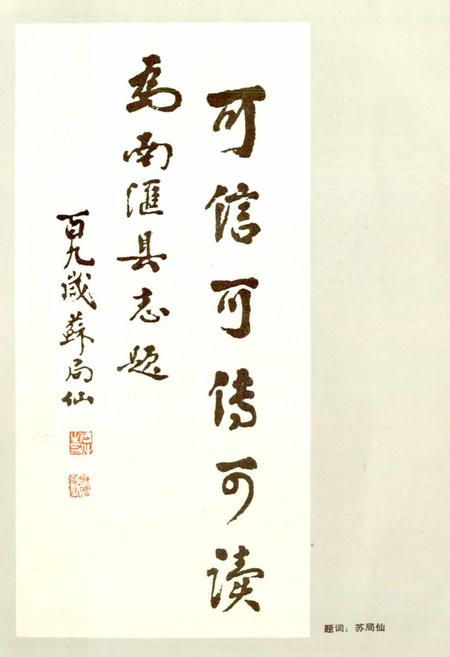 可信可传可读
为南滙县志题
百九岁蘇局仙
题词：苏局仙